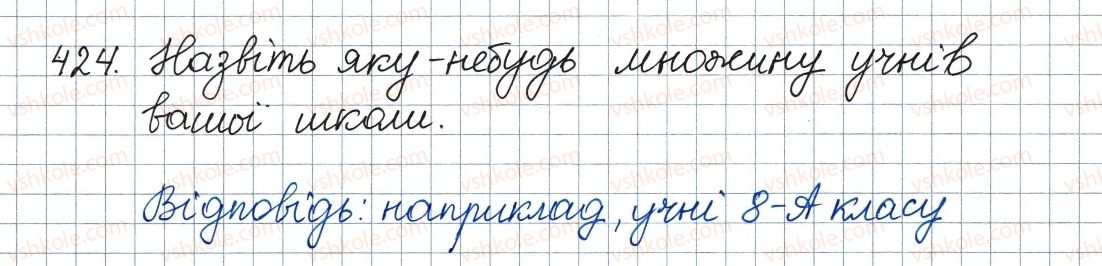 424. Назвіть яку-небудь множину учнів
вашої школи.
Відповідь: наприклад, учні 8-А класу